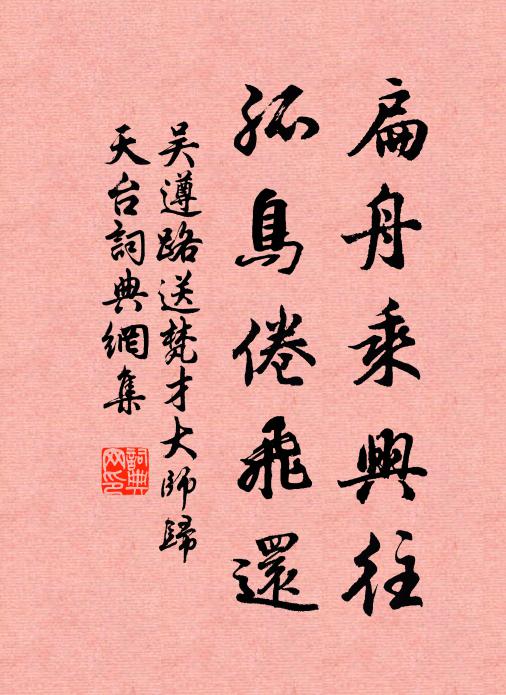 扁舟乘興往
孤鳥倦飛還
吴遵路送梵才大師歸
天台詞典網集
詞典網印